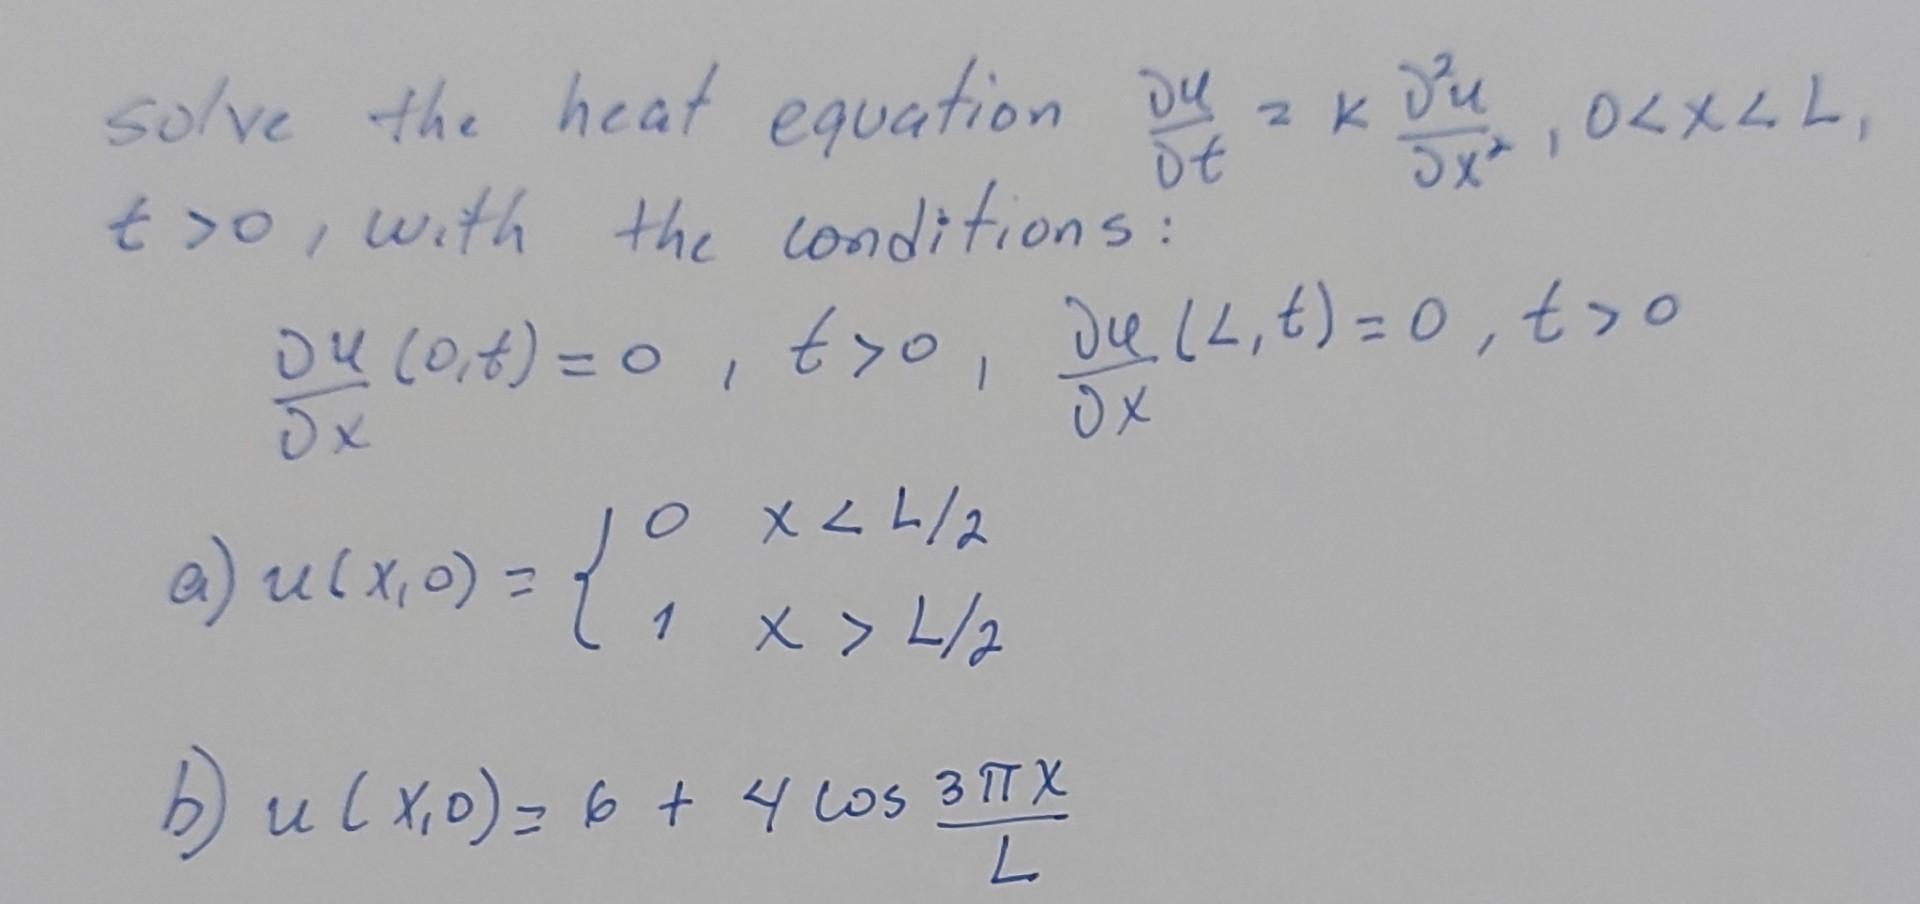 solve the heat equation ∂u/∂t = k ∂²u/∂x², 0<x<L,
t>0, with the conditions:
∂u/∂x (0,t) = 0, t>0, ∂u/∂x (L,t) = 0, t>0
a) u(x,0) = { 0 x < L/2
1 x > L/2
b) u(x,0) = 6 + 4 cos 3πx/L